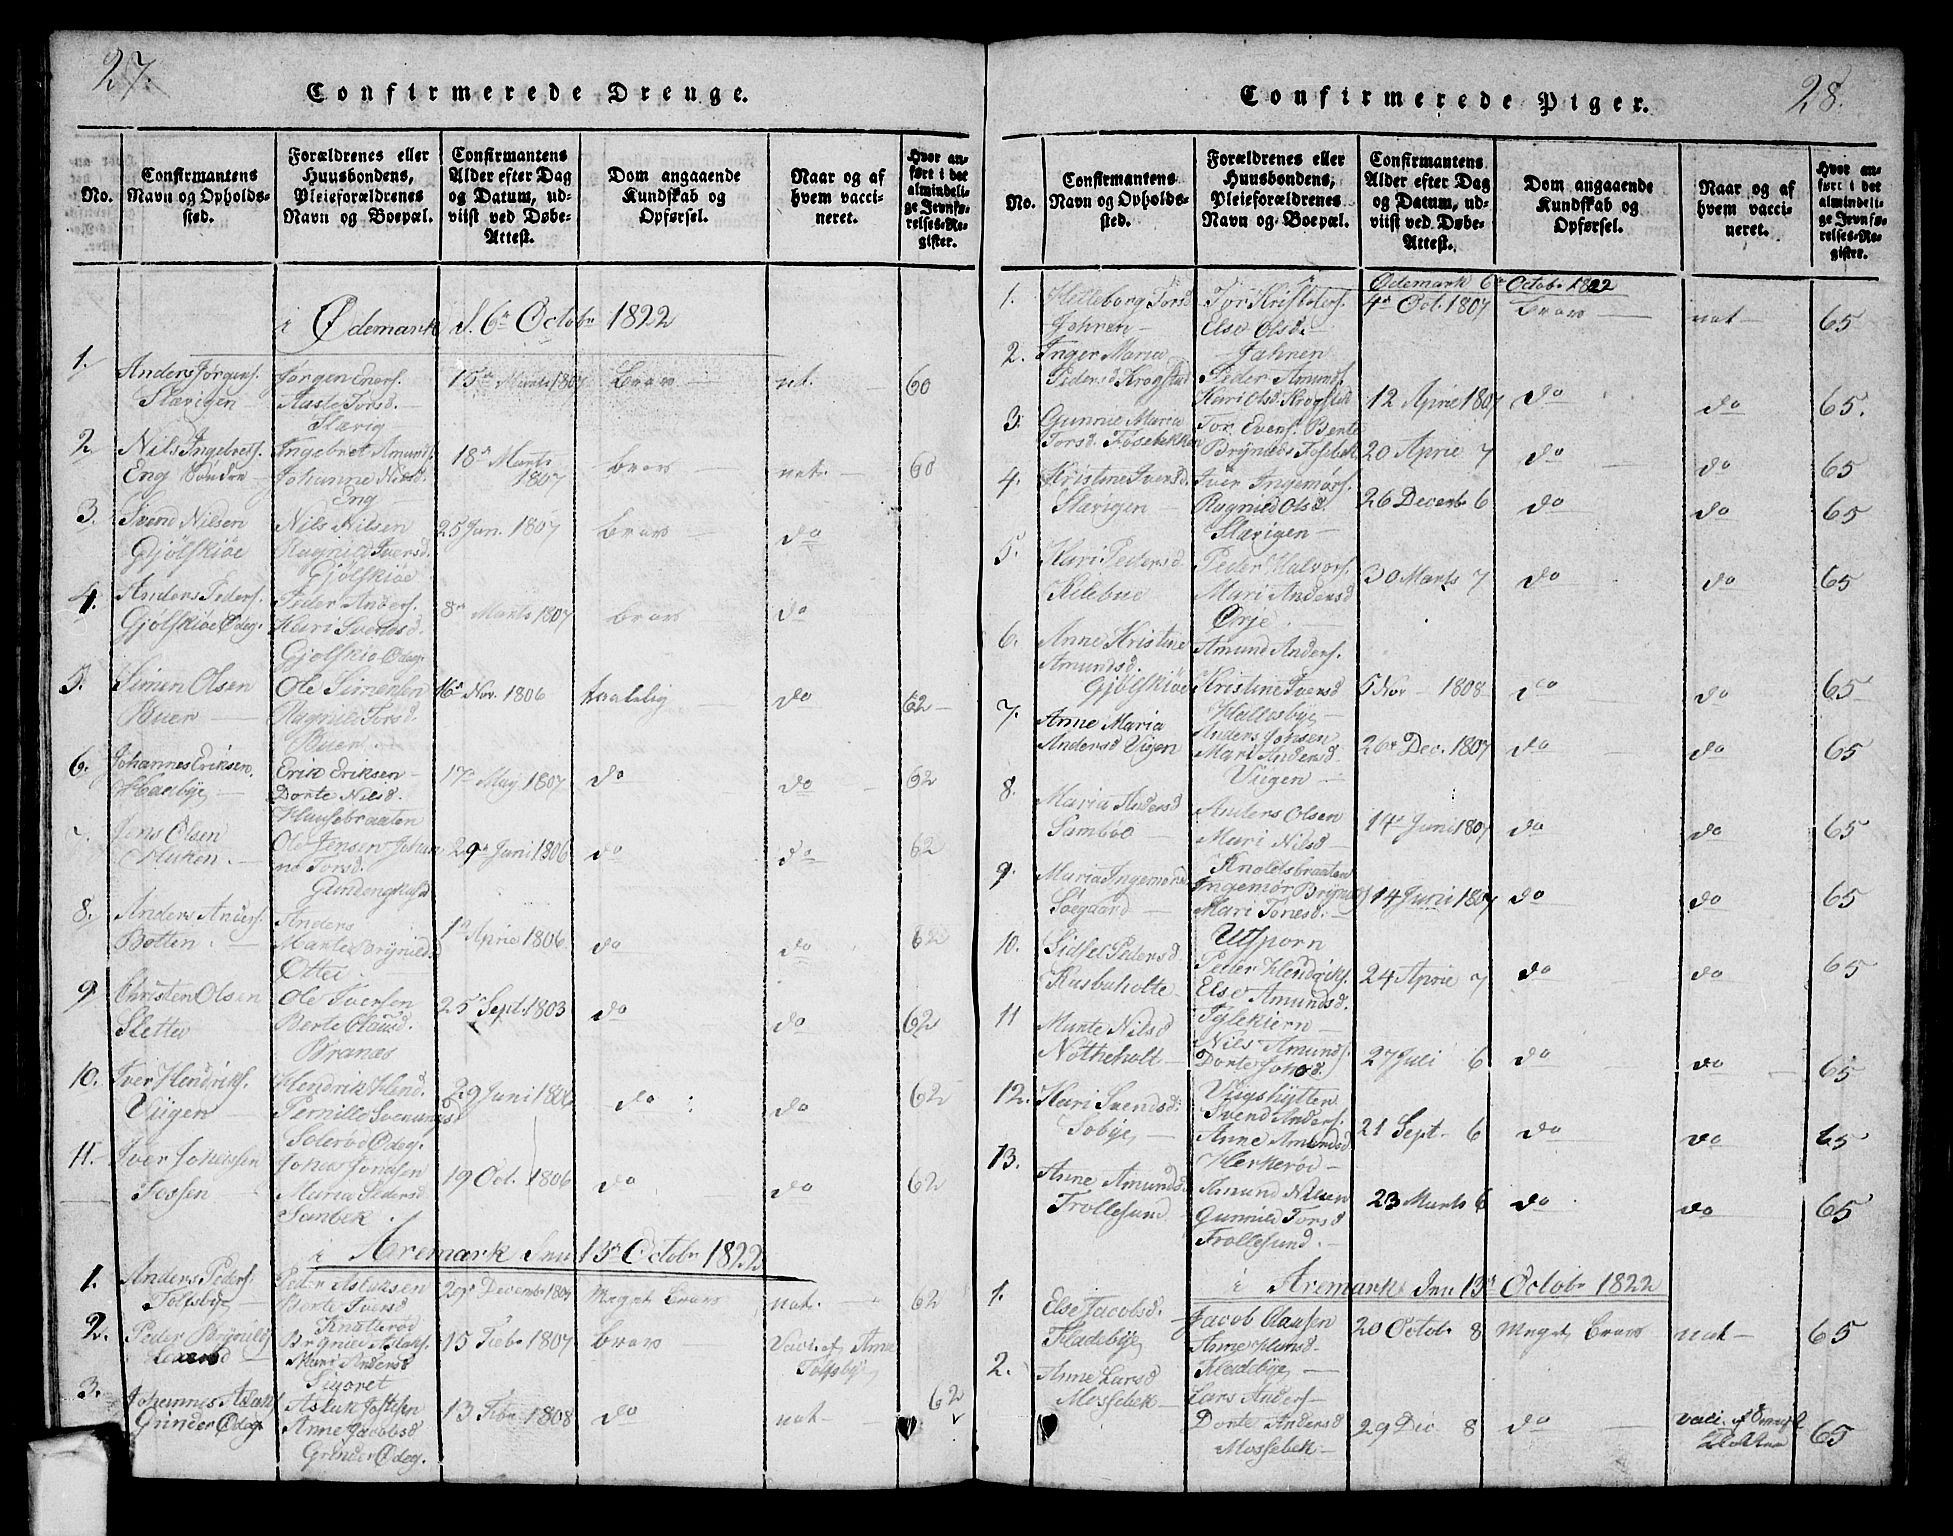 27.
Confirmerede Drenge.
No.
Confirmantens
Navn og Opholds-
sted.
Forældrenes eller
Huusbondens,
Pleieforældrenes
Navn og Boepæl.
Confirmantens
Alder efter Dag
og Datum, ud-
viist ved Døbe-
Attest.
Dom angaaende
Kundskab og
Opførsel.
Naar og af
hvem vacci-
neret.
Hvor an-
ført i det
almindeli-
ge Jevnfø-
relses-Re-
gister.
i Ødemark d. 6te Octobr 1822
1.
Anders Jørgens.
Slavigen
Jørgen
Aasle Torsd.
Slavig
15de Marts 1807
brav
nat.
60
2
Nils Ingebrets.
Eng Søndre
Ingebret Amunds.
Johanne Nilsd.
Eng
18de Marts
1807
brav
nat.
60
3.
Svend Nilsen
Gjølskiøe
Nils Nilsen
Ragnild Iversd.
Gjølskiøe
25 Jan. 1807
brav
do
4.
Anders Peders.
Gjølskiøe Ødeg.
Peder Anders.
Kari Svendsd.
Gjølskio Ødeg.
8de Marts 1807
brav
do
5.
Simen Olsen
Buer
Ole Simensen
Ragnild Torsd.
Buer
16de Nov. 1806
taalelig
do
62
6.
Johannes Eriksen.
Haebÿe
Erik Eriksen
Dorte Nilsd.
Hausebraaten
17de May 1807
do
do
62
7
Jens Olsen
Huken.
Ole Jensen Johan
ne Torsd.
29de Juni 1806
do
do
62
8.
Anders Anders.
Botten.
Anders
Marte Brÿnildsd
Ottei
1ste April 1806
do
do
62
9
Christen Olsen
Sletta
Ole Iversen
Berte Clausd.
Branæs
25de Sept. 1803
do
do
62
10.
Iver Hendriks.
Viigen
Hendrik Hend.
Pernille Svenungsd
Solerød Ødeg.
29 Juni 1806
do
do
62
11.
Iver Johassen
Fossen
Johas Jonassen
Maria Pedersd.
Sanbek
19 Oct. 1806
do
do
62
i Aremark Den 13de Octobr 1822
1.
Anders Peders.
Tolfsbÿe
Peder Aslaksen
Berte Iversd
Knatterød
29de Decembr
Meget brav
nat.
62
2.
Peder Brÿnilds
Brÿnild Aslaks.
Mari Andersd
15 Febr 1807
brav
Vaci. af Arne
Tolfsbÿe
3.
Johannes Aslaks
Grinder Ødeg.
Aslak Jostesen
Anne Jacobsd
Grinder Ødeg.
13 Febr 1808
do
nat
62
28.
Confirmerede Piger.
No.
Confirmantens
Navn og Opholds-
sted.
Forældrenes eller
Huusbondens,
Pleieforældrenes
Navn og Boepæl.
Confirmantens
Alder efter Dag
og Datum, ud-
viist ved Døbe-
Attest.
Dom angaaende
Kundskab og
Opførsel.
Naar og af
hvem vacci-
neret.
Hvor an-
ført i det
almindeli-
ge Jevnfø-
relses-Re-
gister.
Ødemark 6te Octobr 1822
1.
Helleborg Torsd
Johnen
Tor Kristofers.
Else Olsd.
Jahnen
4de Oct. 1807
brav
nat
65
2.
Inger Maria
Pedersd Krogstad
Peder Amunds.
Kari Olsd Krogstad
12 April 1807
do
do
65.
3.
Gunnie Maria
Torsd. Fosebekken
Tor Evens. Berte
20 April 7
do
do
65
4.
Kristine Iversd.
Slavigen
Iver Ingemørs.
Ragnild Olsd.
Slavigen
26 Decemb 6
do
do
65
5.
Kari Pedersd
Kilebue
Peder Halvors.
Mari Andersd
Ørje
30 Marts 7
do
do
65
6.
Anne Kristine
Amundsd.
Gjølskiøe
Amund Anders.
Kristine Iversd
5 Nov 1808
do
do
65
7.
Anne Maria
Andersd Viigen
Anders Jonsen
Mari Andersd
Viigen
26de Dec. 1807
do
do
65
8.
Maria Andersd
Sambøe
Anders Olsen
Mari Nilsd
Knoldsbraaten
14de Juni 1807
do
do
65
9.
Maria Ingemørsd
Søegaard
Mari Tonesd.
14 Juni 1807
do
do
65
10.
Sidsel Pedersd
Rusbuholte
Peder Hendriks.
Else Amundsd.
24 April 7
do
do
65
11
Marte Nilsd
Nøtteholt
Nils Amunds.
27 Juli 6
do
do
65
12.
Kari Svendsd.
Tobÿe
Svend Anders.
Anne Amundsd
Herkerød
21 Sept. 6
do
do
65
13.
Anne Amundsd
Trollesund
Amund Nilsen
Gunnild Torsd
Trollesund.
23 Marts 6
do
do
65
i Aremark Den 13de Octobr 1822
1.
Else Jacobsd.
Fladebÿe
Jacob Clausen
Anne Hansd.
Fladebÿe
20 Octobr 8
Meget brav
nat
65
2.
Anne Larsd
Mossebek
Lars Anders
Dorte Andersd
Mossebek
29 Dec 8
do
vaci. af
65